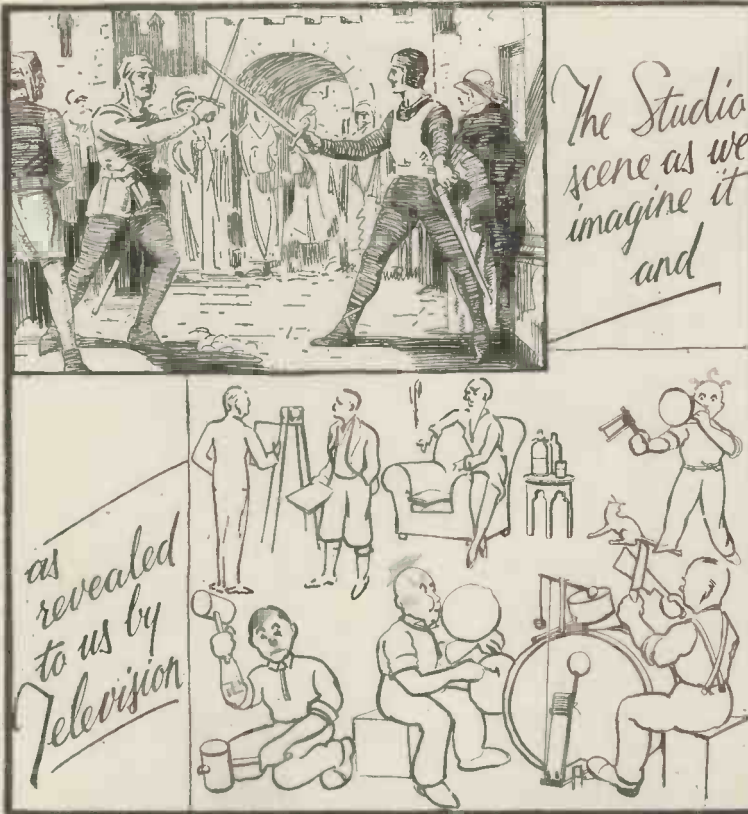 The Studio
scene as we
imagine it
and
as
revealed
to us by
Television